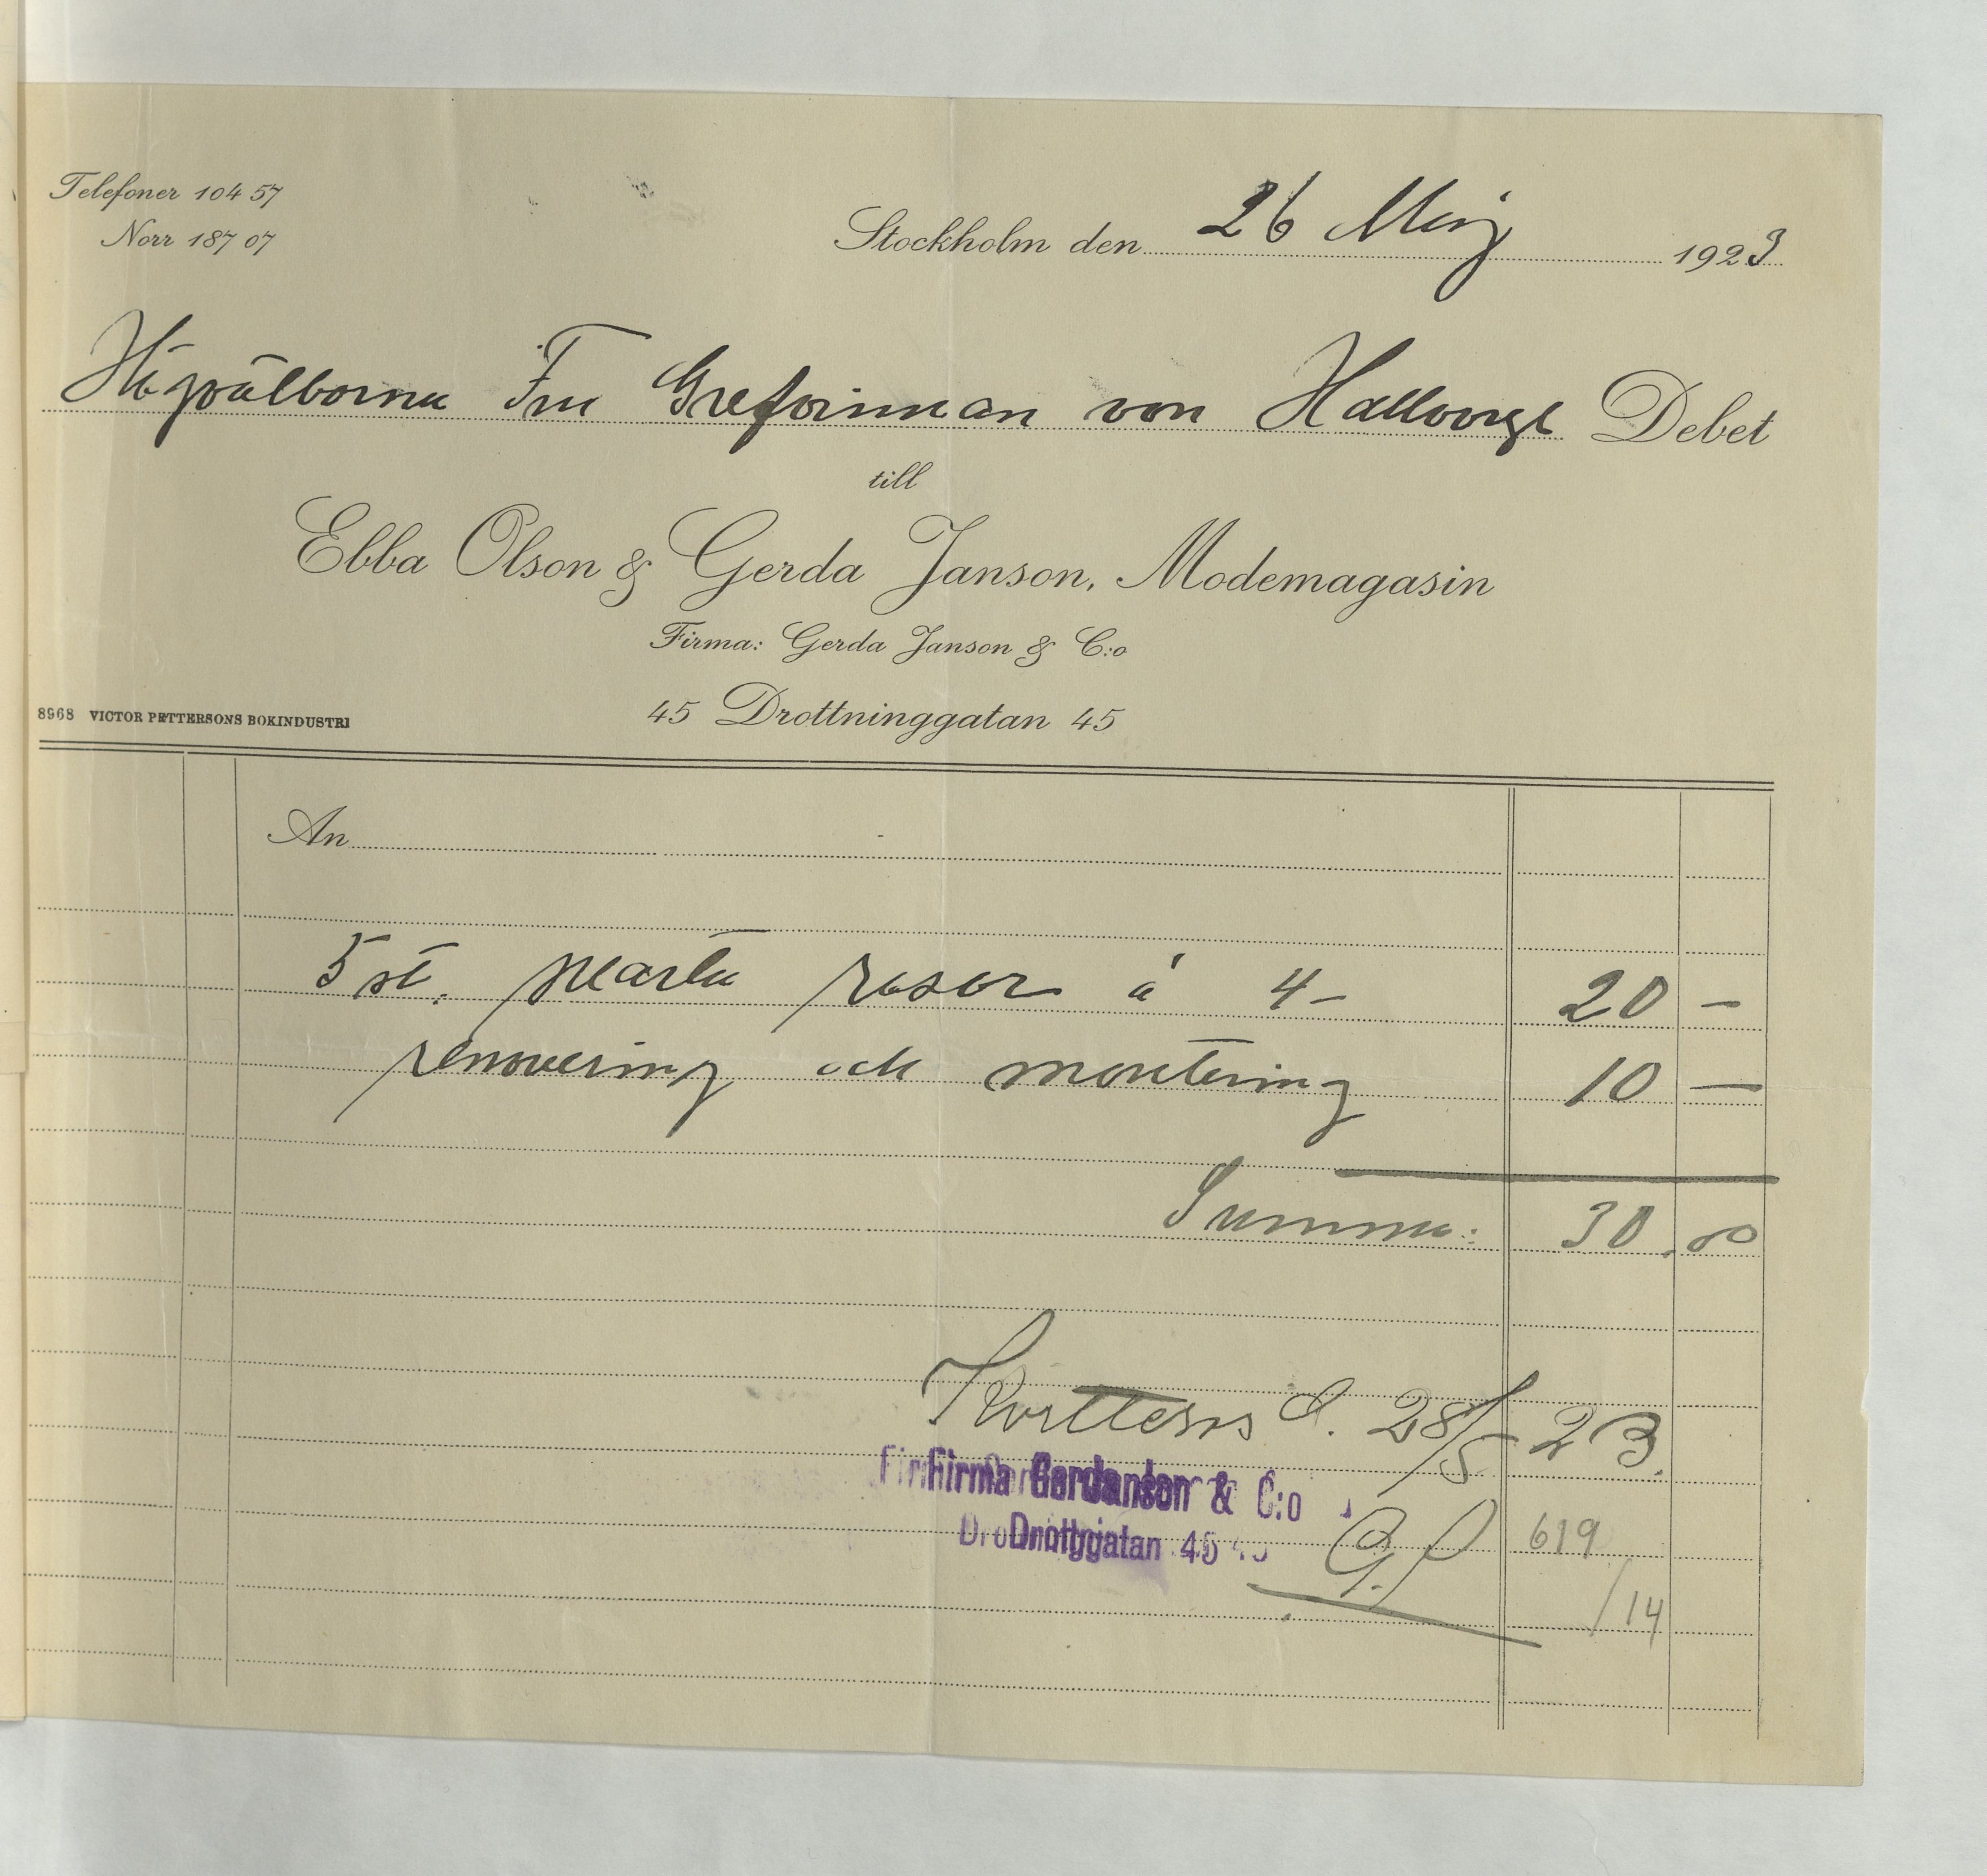 Telefoner 104 57
Norr 187 07
Stockholm den 26 Maj 1923
Högvälborna Fru Grefvinnan von Hallwyl Debet
till
Ebba Olson & Gerda Janson, Modemagasin
Firma: Gerda Janson & C:o
45 Drottninggatan 45
8968 VICTOR PETTERSONS BOKINDUSTRI
An
5 st. svarta rosor á 4– 20 –
renovering och montering 10 –
Summa: 30.00
Kvitteras d. 28/5 23.
Firma Gerda Janson & C:o
Drottninggatan 45
619
/14